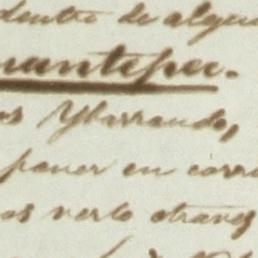 dentro de algu
uantepec.
os Ybarrando,
poner en corr
os verlo otravez